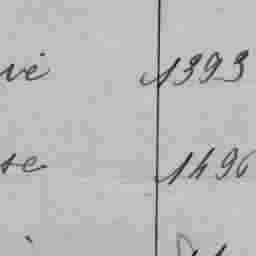 vé 1393
se 1496